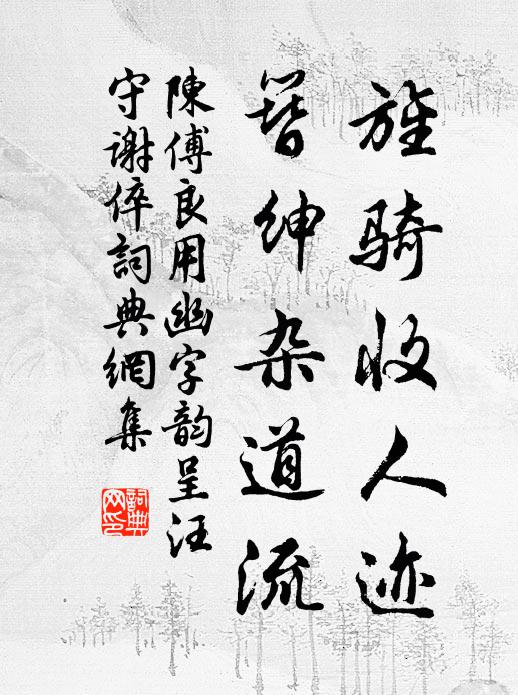 旌骑收人迹
簪绅杂道流
陳傅良用幽字韵呈汪
守谢倅詞典網集
詞典網印